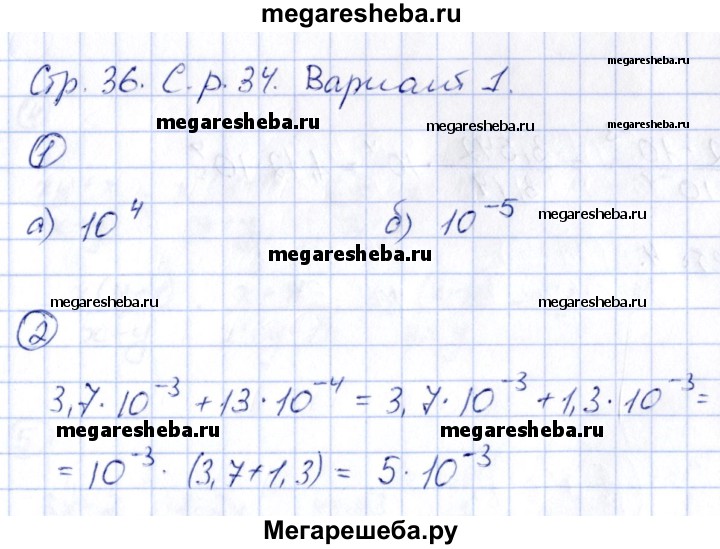 megaresheba.ru
Стр. 36. С.р. 34. Вариант 1.
megaresheba.ru
megaresheba.ru
megaresheba.ru
megaresheba.ru
1
а) 10⁴ б) 10⁻⁵
megaresheba.ru
megaresheba.ru
megaresheba.ru
megaresheba.ru
2
3,7·10⁻³ + 13·10⁻⁴ = 3,7·10⁻³ + 1,3·10⁻³ =
megaresheba.ru megaresheba.ru
= 10⁻³ · (3,7+1,3) = 5·10⁻³
Мегарешеба.ру